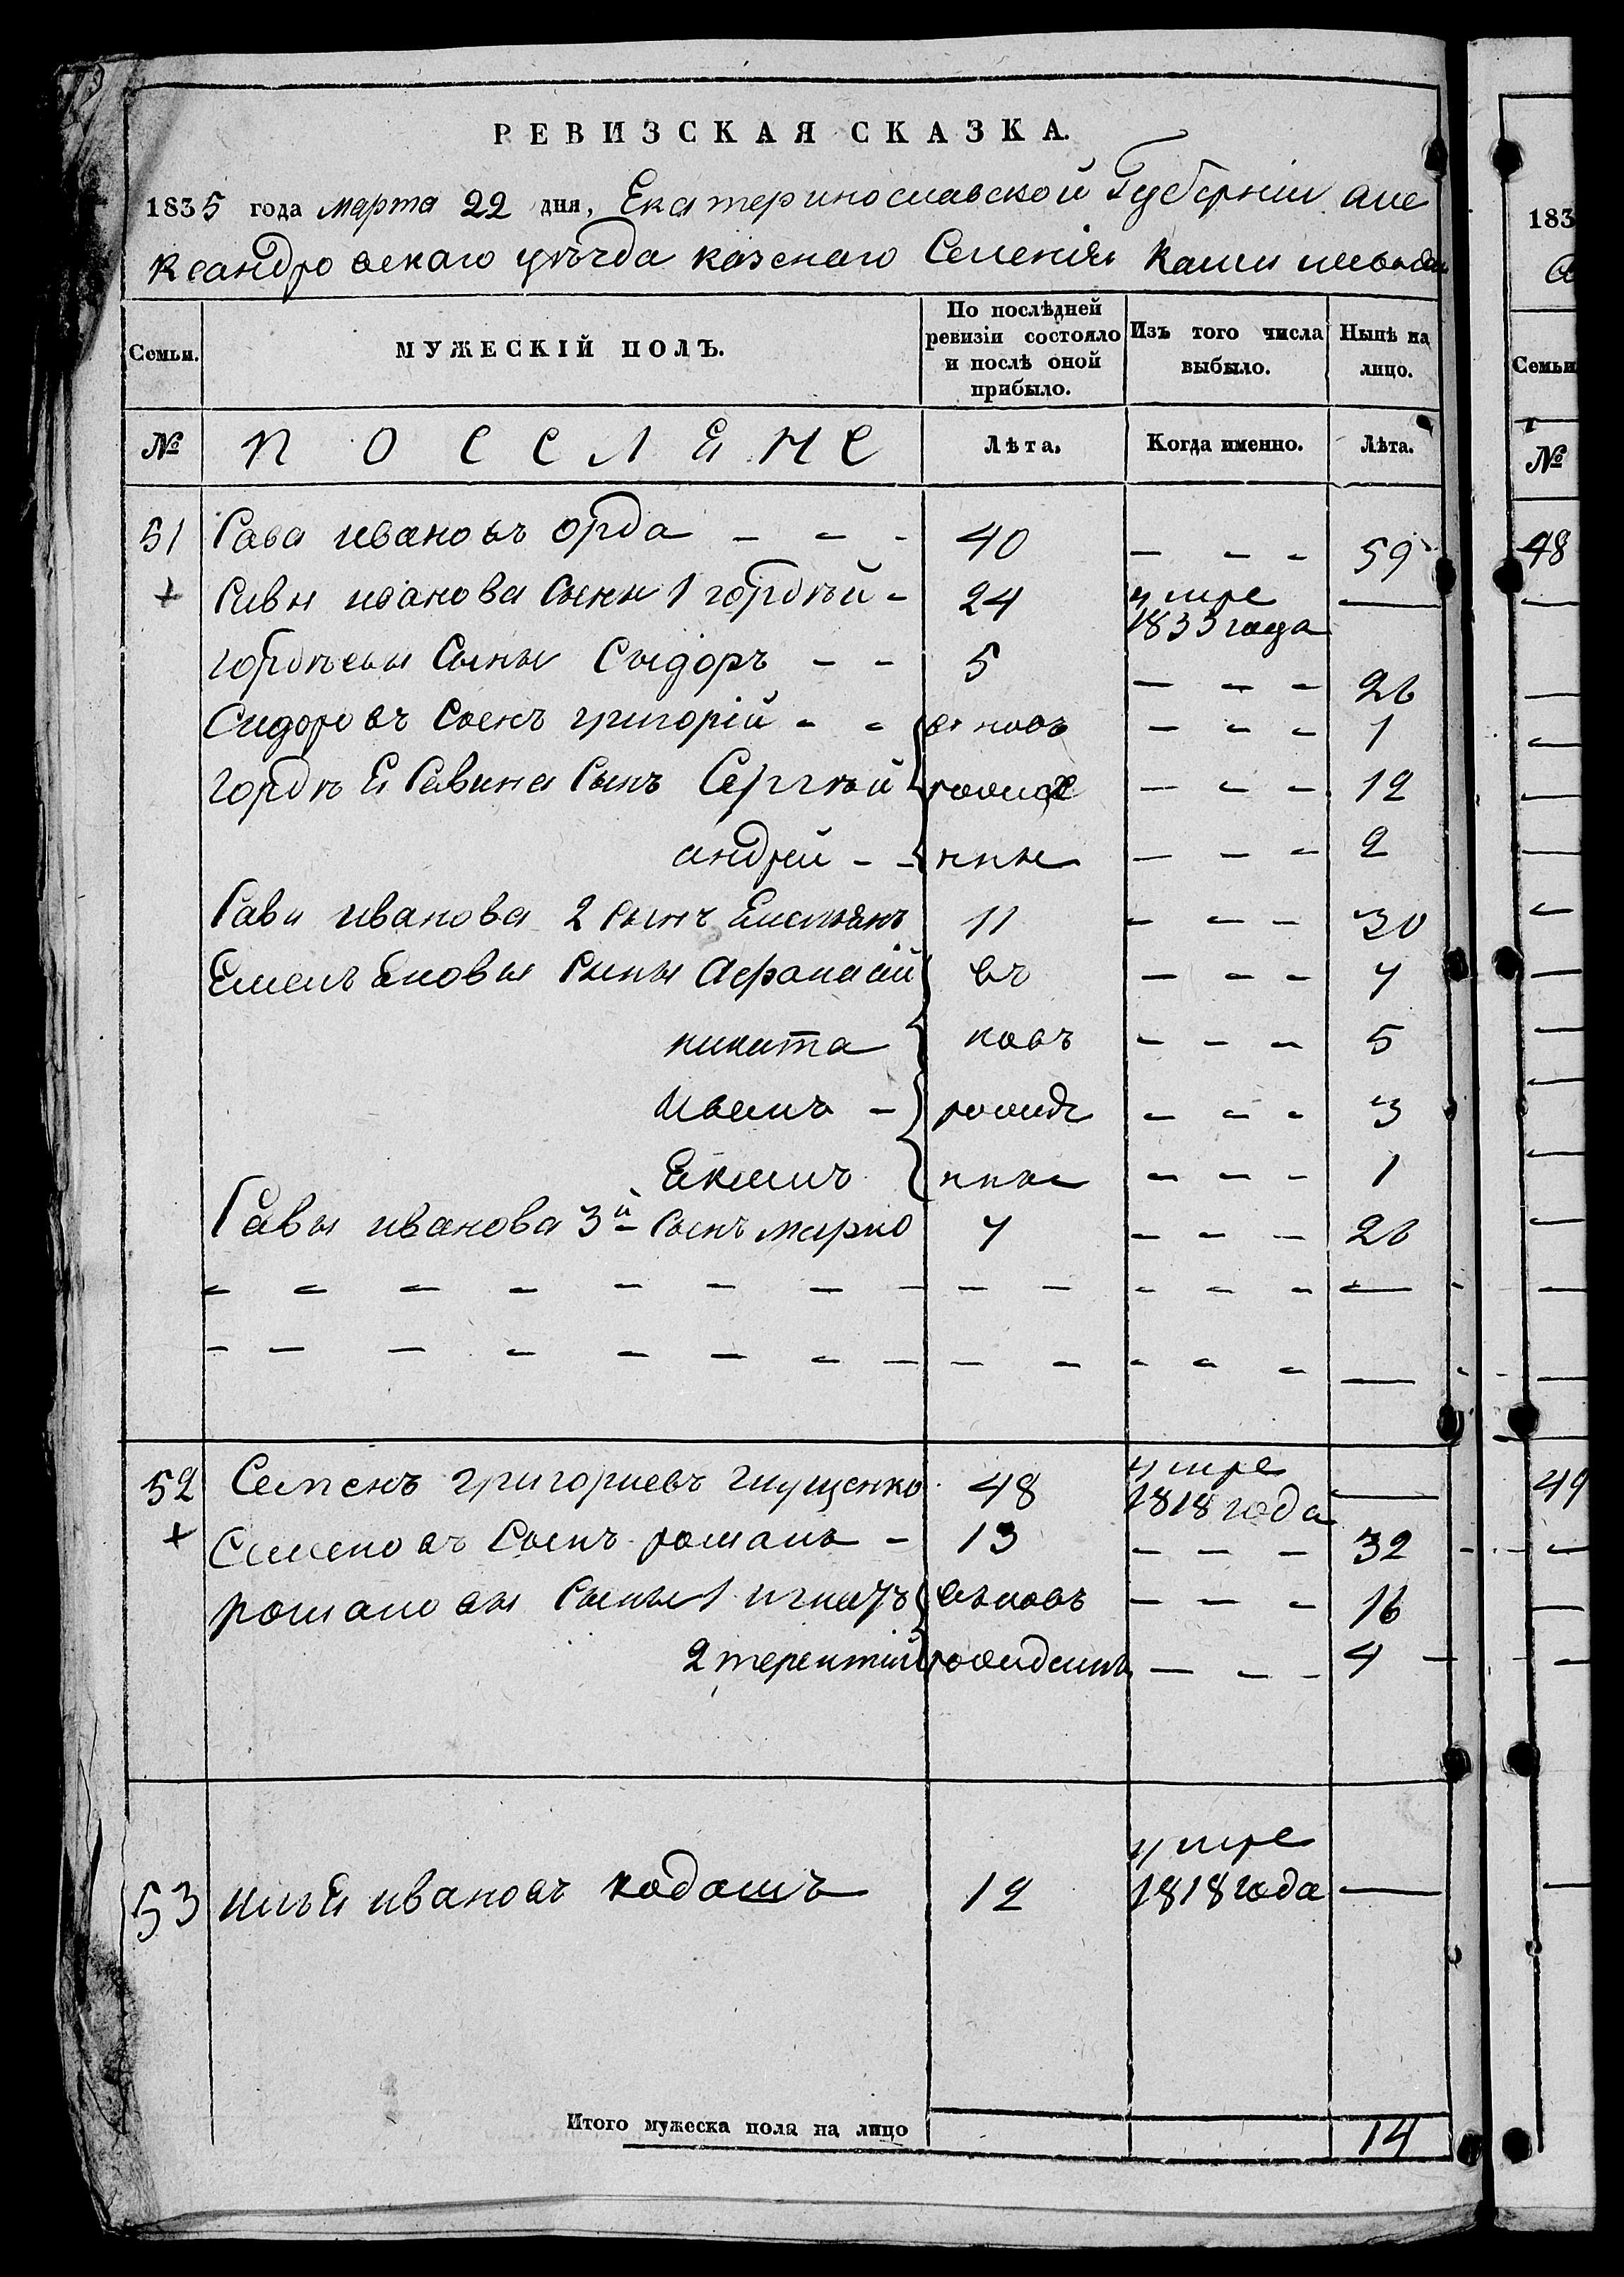 РЕВИЗСКАЯ СКАЗКА.
1835 года марта 22 дня, Екатеринославской Губерніи але
ксандровскаго уѣзда казенаго Селенія
Семьи. МУЖЕСКІЙ ПОЛЪ. По послѣдней ревизіи состояло и послѣ оной прибыло. Изъ того числа выбыло. Нынѣ на лицо.
№ П О С Е Л Я Н Е Лѣта. Когда именно. Лѣта.
51 Сава ивановъ орда - - - 40 - - - 59
+ Савы иванова сыны 1 гордѣй - 24 умре 1833 года —
гордѣевы сыны Сыдоръ - - 5 - - - 26
Сидоровъ сынъ григорій - - вновь - - - 1
гордѣя Савина сынъ Сергѣй рожде - - - 12
андрей - - нны - - - 2
Савы иванова 2 сынъ Емельянъ 11 - - - 30
Емельяновы сыны Афанасій въ - - - 7
никита новъ - - - 5
Иванъ - рожде - - - 3
Екимъ нны - - - 1
Савы иванова 3й сынъ марко 7 - - - 26
- - - - - - - - - - - - - —
- - - - - - - - - - - - - —
52 Семенъ григориевъ глущенко 48 умре 1818 года —
+ Семеновъ сынъ романъ - 13 - - - 32
романовы сыны 1 игнатъ вновь - - - 16
2 терентій рожденны - - - 4
53 илья ивановъ кодашъ 12 умре 1818 года —
Итого мужеска пола на лицо 14
183
Семьи
№
48
49